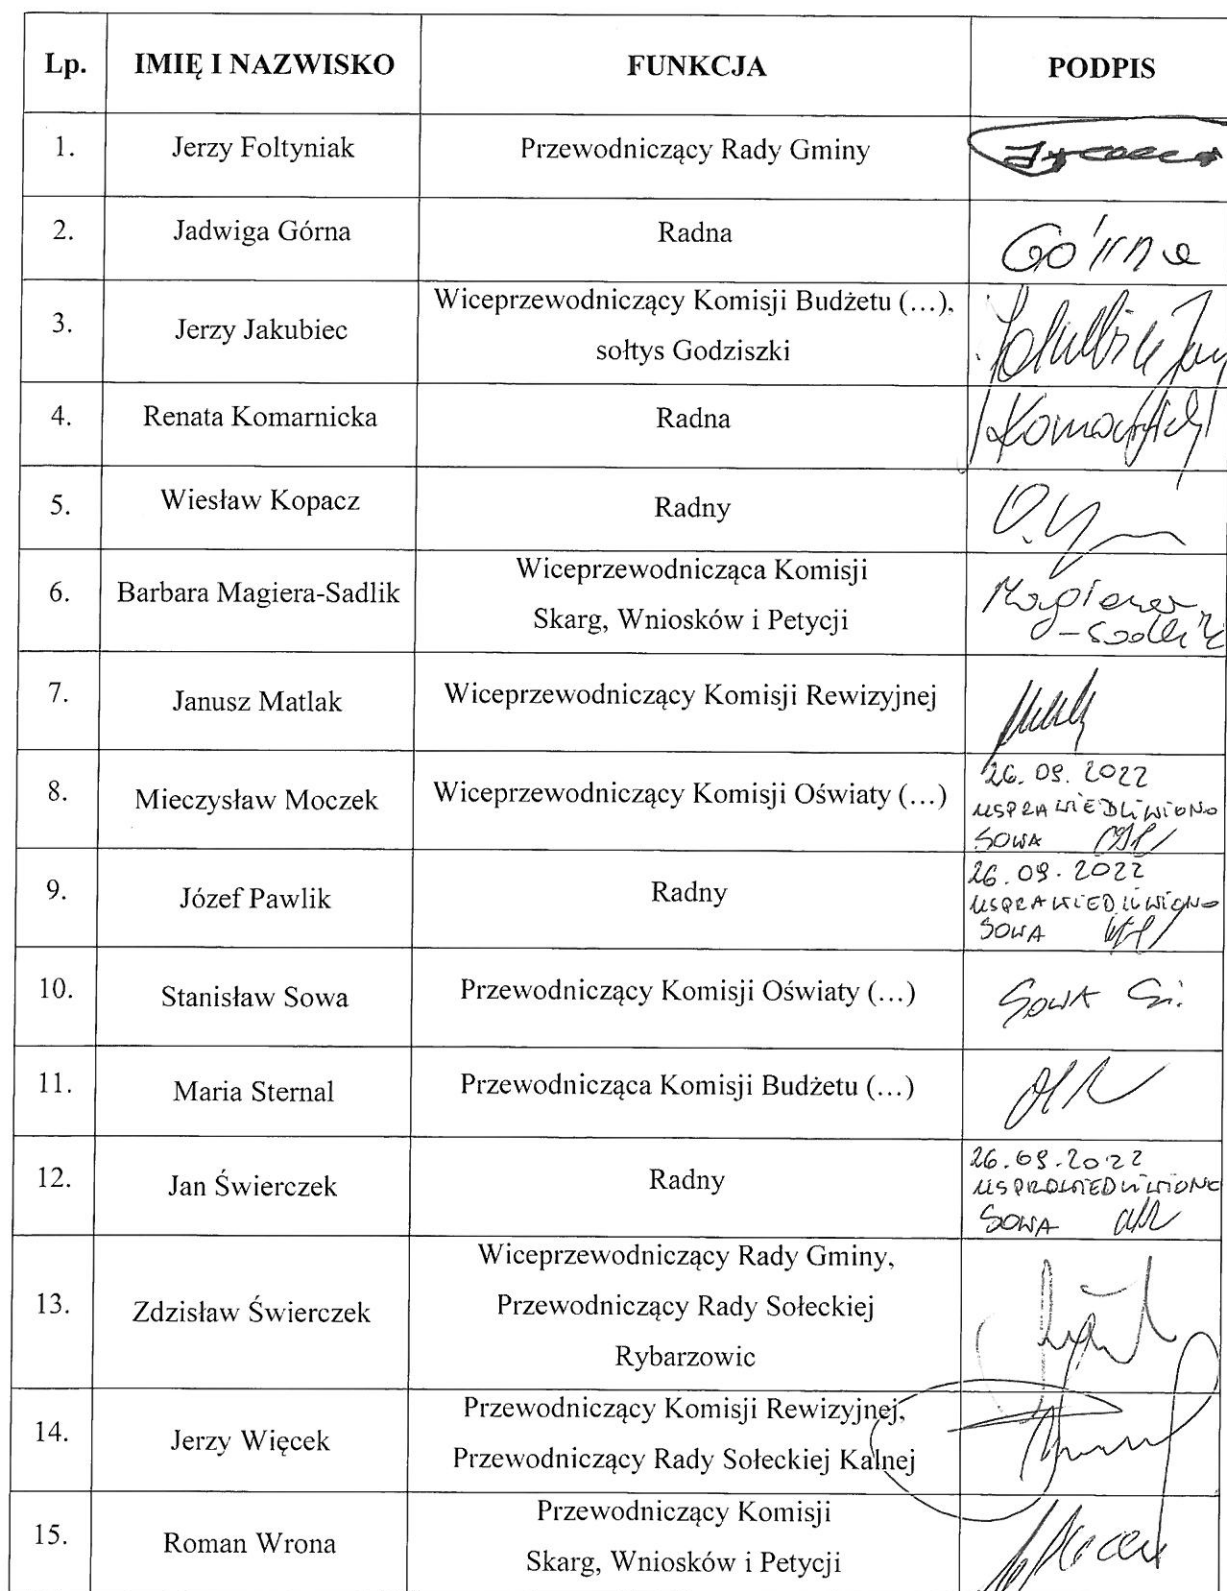 Lp. IMIĘ I NAZWISKO FUNKCJA PODPIS
1. Jerzy Foltyniak Przewodniczący Rady Gminy
2. Jadwiga Górna Radna Górna
3. Jerzy Jakubiec Wiceprzewodniczący Komisji Budżetu (…),
sołtys Godziszki
4. Renata Komarnicka Radna
5. Wiesław Kopacz Radny
6. Barbara Magiera-Sadlik Wiceprzewodnicząca Komisji
Skarg, Wniosków i Petycji
Magiera
-Sadlik
7. Janusz Matlak Wiceprzewodniczący Komisji Rewizyjnej
8. Mieczysław Moczek Wiceprzewodniczący Komisji Oświaty (…)
26.09.2022
USPRAWIEDLIWIONO
SOWA
9. Józef Pawlik Radny
26.09.2022
USPRAWIEDLIWIONO
SOWA
10. Stanisław Sowa Przewodniczący Komisji Oświaty (…) Sowa
11. Maria Sternal Przewodnicząca Komisji Budżetu (…)
12. Jan Świerczek Radny
26.09.2022
USPRAWIEDLIWIONO
SOWA
13. Zdzisław Świerczek Wiceprzewodniczący Rady Gminy,
Przewodniczący Rady Sołeckiej
Rybarzowic
14. Jerzy Więcek Przewodniczący Komisji Rewizyjnej,
Przewodniczący Rady Sołeckiej Kalnej
15. Roman Wrona Przewodniczący Komisji
Skarg, Wniosków i Petycji